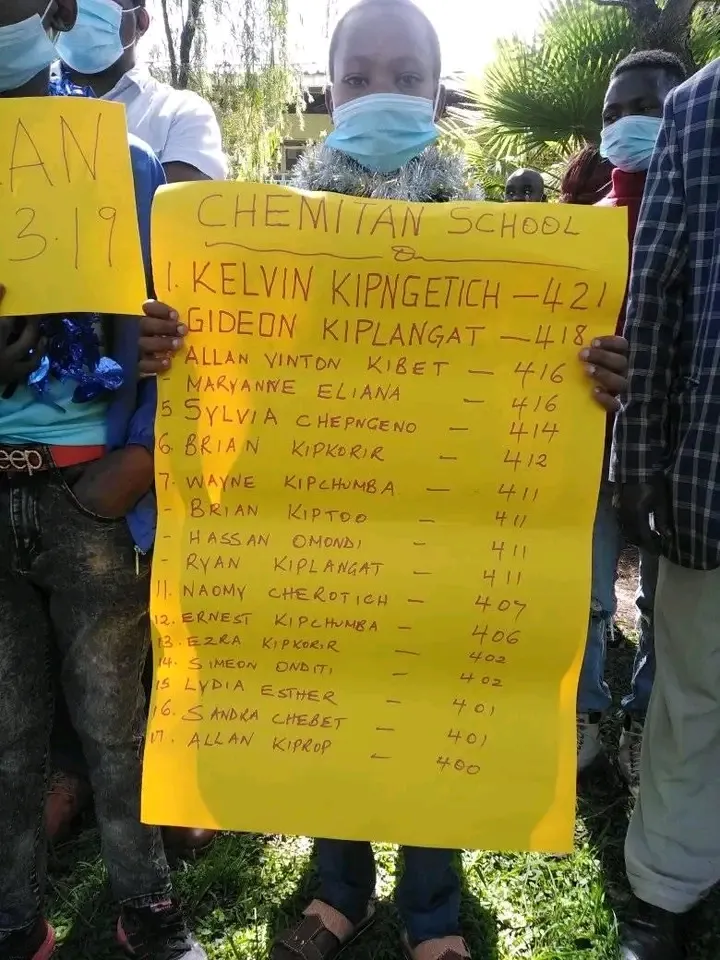 AN
3.19
CHEMITAN SCHOOL
1. KELVIN KIPNGETICH — 421
- GIDEON KIPLANGAT — 418
- ALLAN VINTON KIBET — 416
- MARYANNE ELIANA — 416
5 SYLVIA CHEPNGENO — 414
6. BRIAN KIPKORIR — 412
7. WAYNE KIPCHUMBA — 411
- BRIAN KIPTOO — 411
- HASSAN OMONDI — 411
- RYAN KIPLANGAT — 411
11. NAOMY CHEROTICH — 407
12. ERNEST KIPCHUMBA — 406
13. EZRA KIPKORIR — 402
14. SIMEON ONDITI — 402
15 LYDIA ESTHER — 401
16. SANDRA CHEBET — 401
17. ALLAN KIPROP — 400
eep